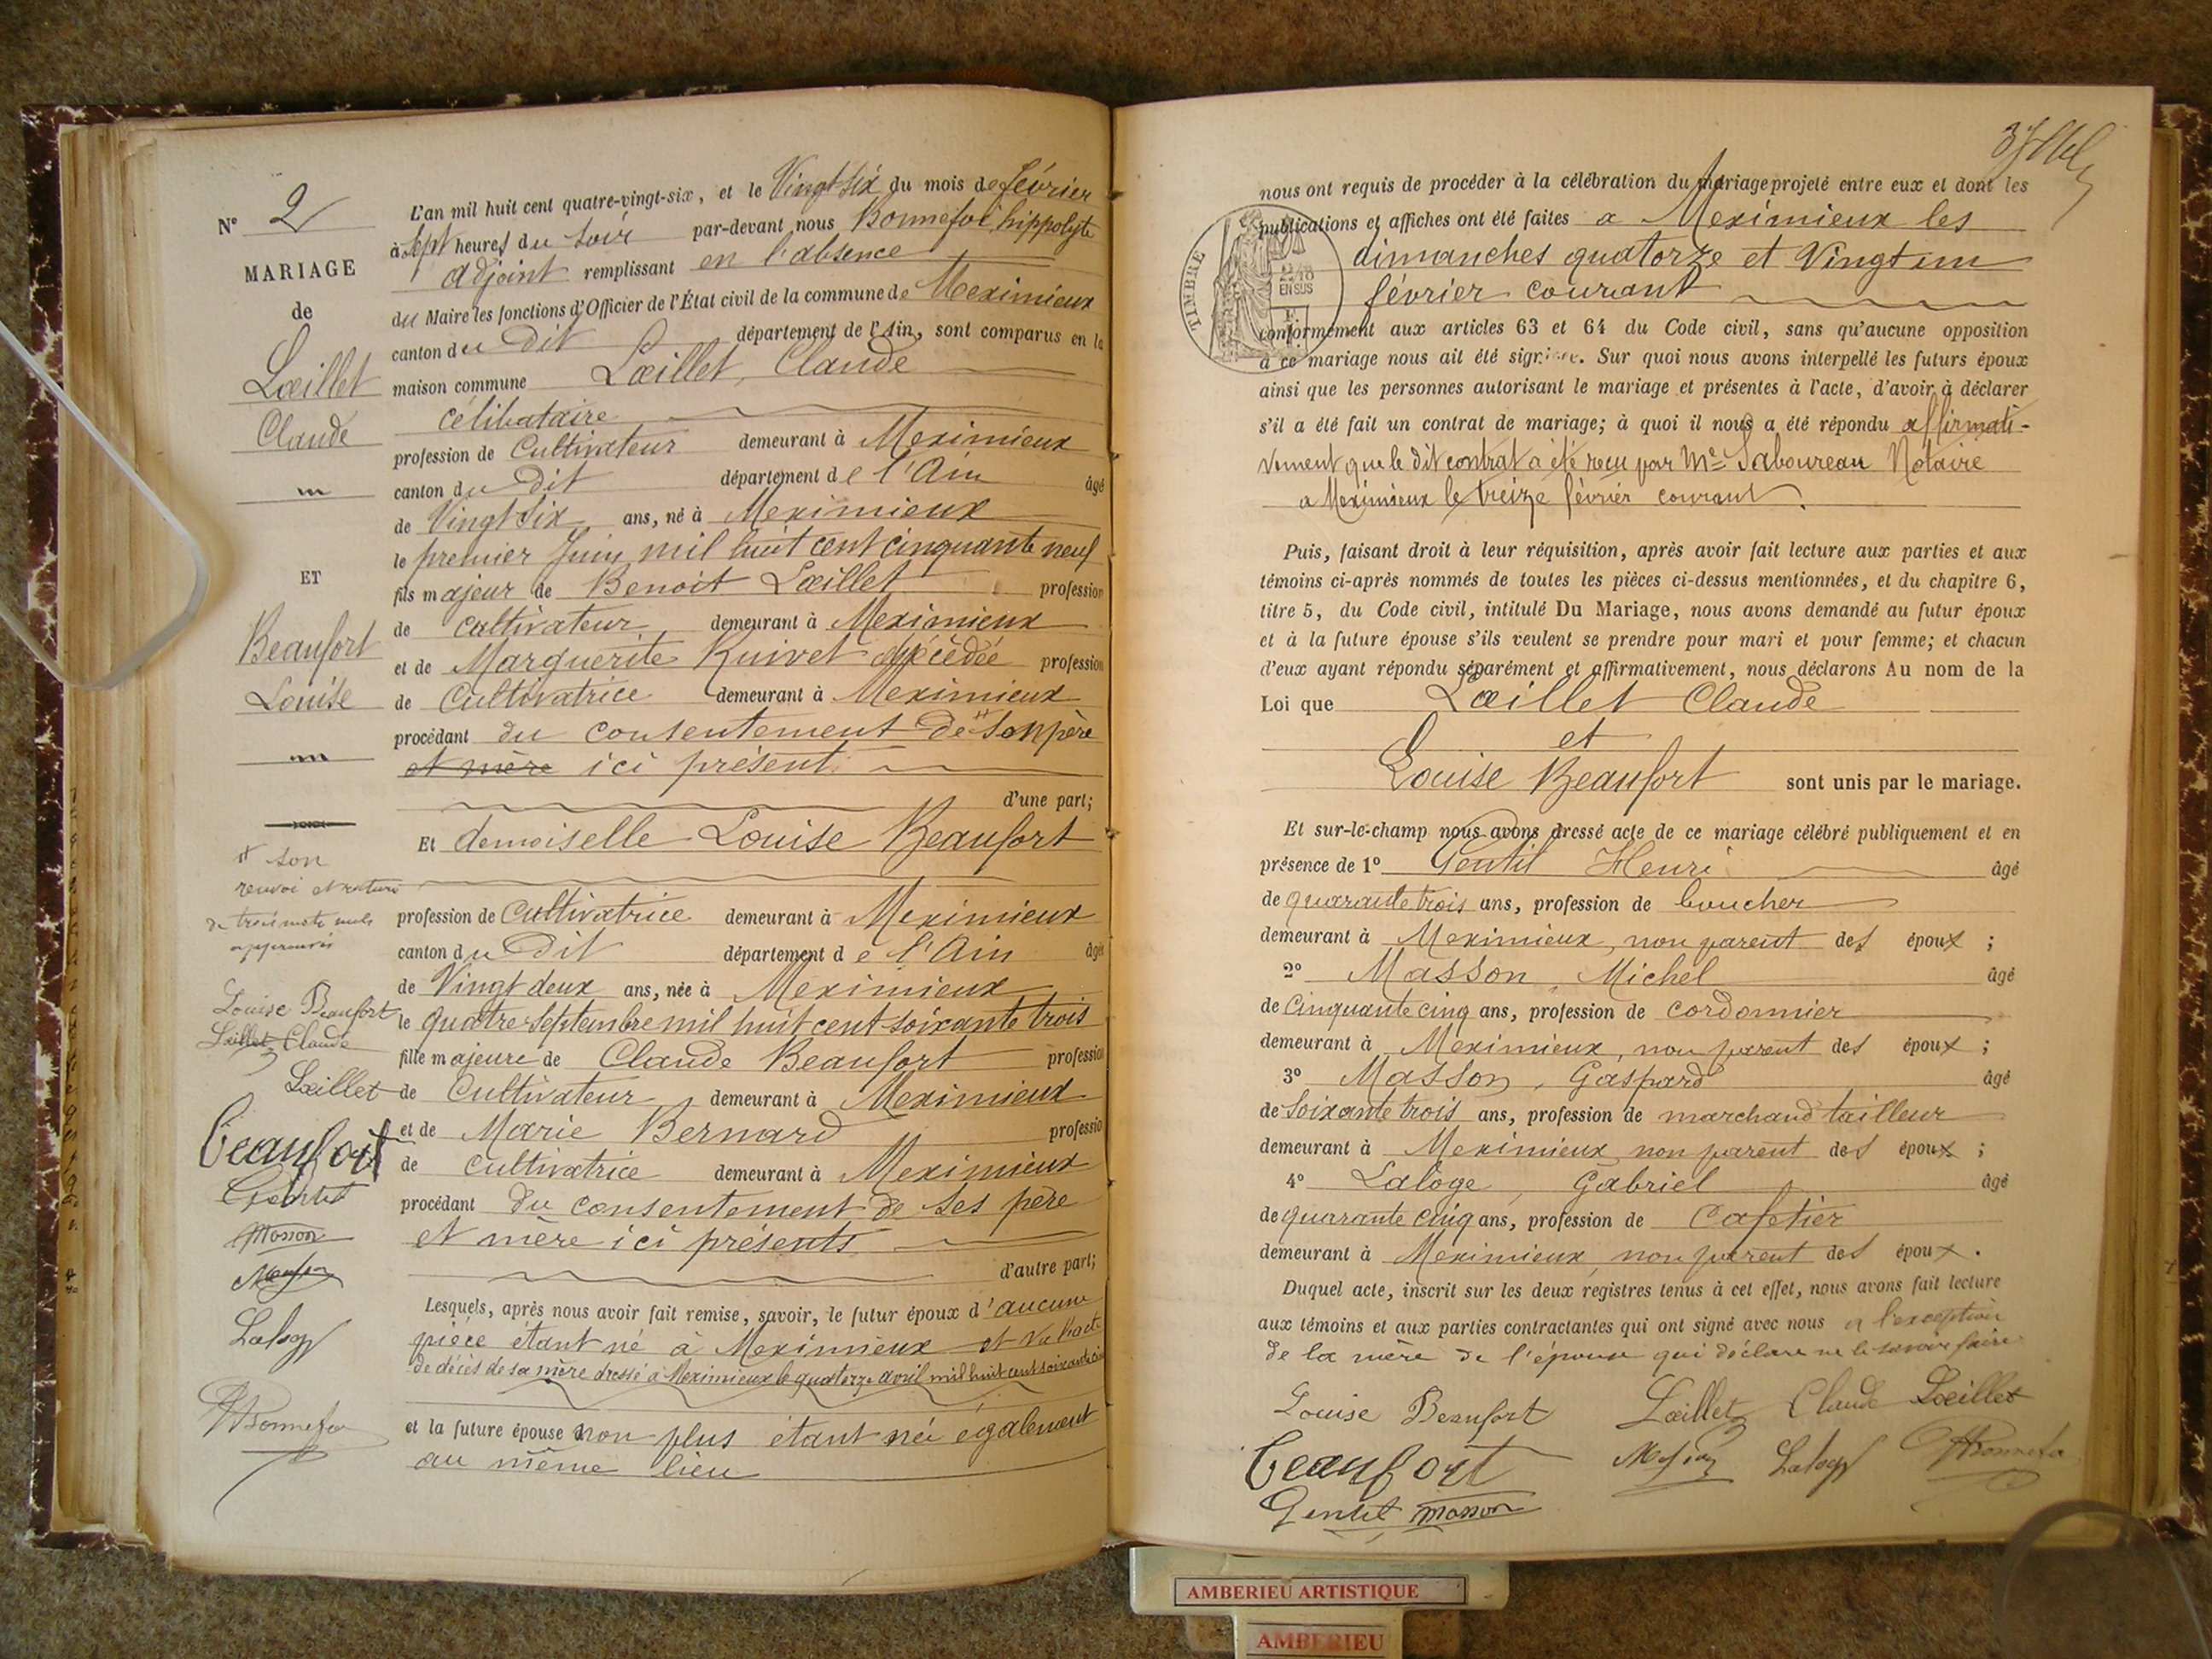 N° 2
MARIAGE
de
Lœillet
Claude
ET
Beaufort
Louise
L'an mil huit cent quatre-vingt-six, et le Vingt six du mois de février
à sept heures du soir par-devant nous Bonnefoi hippolyte
adjoint remplissant en l'absence
du Maire les fonctions d'Officier de l'État civil de la commune de Meximieux
canton du dit département de l'Ain, sont comparus en la
maison commune Lœillet, Claude
célibataire
profession de Cultivateur demeurant à Meximieux
canton du dit département de l'Ain âgé
de Vingt six ans, né à Meximieux
le premier Juin mil huit cent cinquante neuf
fils majeur de Benoit Lœillet profession
de cultivateur demeurant à Meximieux
et de Marguerite Ruivet décédée profession
de Cultivatrice demeurant à Meximieux
procédant du consentement de son père
et mère ici présent
d'une part;
Et demoiselle Louise Beaufort
profession de Cultivatrice demeurant à Meximieux
canton du dit département de l'Ain âgée
de Vingt deux ans, née à Meximieux
le quatre septembre mil huit cent soixante trois
fille majeure de Claude Beaufort profession
de Cultivateur demeurant à Meximieux
et de Marie Bernard profession
de cultivatrice demeurant à Meximieux
procédant du consentement de ses père
et mère ici présents
d'autre part;
Lesquels, après nous avoir fait remise, savoir, le futur époux d'aucune
pièce étant né à Meximieux et vu l'acte
de décès de sa mère dressé à Meximieux le quatorze avril mil huit cent soixante
et la future épouse non plus étant née également
au même lieu
son
renvoi et rature
de trois mots nuls
approuvés
Louise Beaufort
Lœillet Claude
Lœillet
Beaufort
Gentil
Masson
Masson
Laloge
Bonnefoi
nous ont requis de procéder à la célébration du mariage projeté entre eux et dont les
publications et affiches ont été faites a Meximieux les
dimanches quatorze et Vingt un
février courant
TIMBRE
EN SUS
conformément aux articles 63 et 64 du Code civil, sans qu'aucune opposition
à ce mariage nous ait été signifiée. Sur quoi nous avons interpellé les futurs époux
ainsi que les personnes autorisant le mariage et présentes à l'acte, d'avoir à déclarer
s'il a été fait un contrat de mariage; à quoi il nous a été répondu affirmati-
vement que le dit contrat a été reçu par Me Saboureau Notaire
a Meximieux le treize février courant.
Puis, faisant droit à leur réquisition, après avoir fait lecture aux parties et aux
témoins ci-après nommés de toutes les pièces ci-dessus mentionnées, et du chapitre 6,
titre 5, du Code civil, intitulé Du Mariage, nous avons demandé au futur époux
et à la future épouse s'ils veulent se prendre pour mari et pour femme; et chacun
d'eux ayant répondu séparément et affirmativement, nous déclarons Au nom de la
Loi que Lœillet Claude
et
Louise Beaufort sont unis par le mariage.
Et sur-le-champ nous avons dressé acte de ce mariage célébré publiquement et en
présence de 1° Gentil Henri âgé
de quarante trois ans, profession de boucher
demeurant à Meximieux, non parent des époux ;
2° Masson, Michel âgé
de Cinquante cinq ans, profession de cordonnier
demeurant à Meximieux, non parent des époux ;
3° Masson, Gaspard âgé
de soixante trois ans, profession de marchand tailleur
demeurant à Meximieux non parent des époux ;
4° Laloge, Gabriel âgé
de quarante cinq ans, profession de Cafetier
demeurant à Meximieux, non parent des époux.
Duquel acte, inscrit sur les deux registres tenus à cet effet, nous avons fait lecture
aux témoins et aux parties contractantes qui ont signé avec nous a l'exception
de la mère de l'épouse qui déclare ne le savoir faire
Louise Beaufort Lœillet Claude Lœillet
Beaufort Masson Laloge Bonnefoi
Gentil Masson
AMBERIEU ARTISTIQUE
AMBERIEU